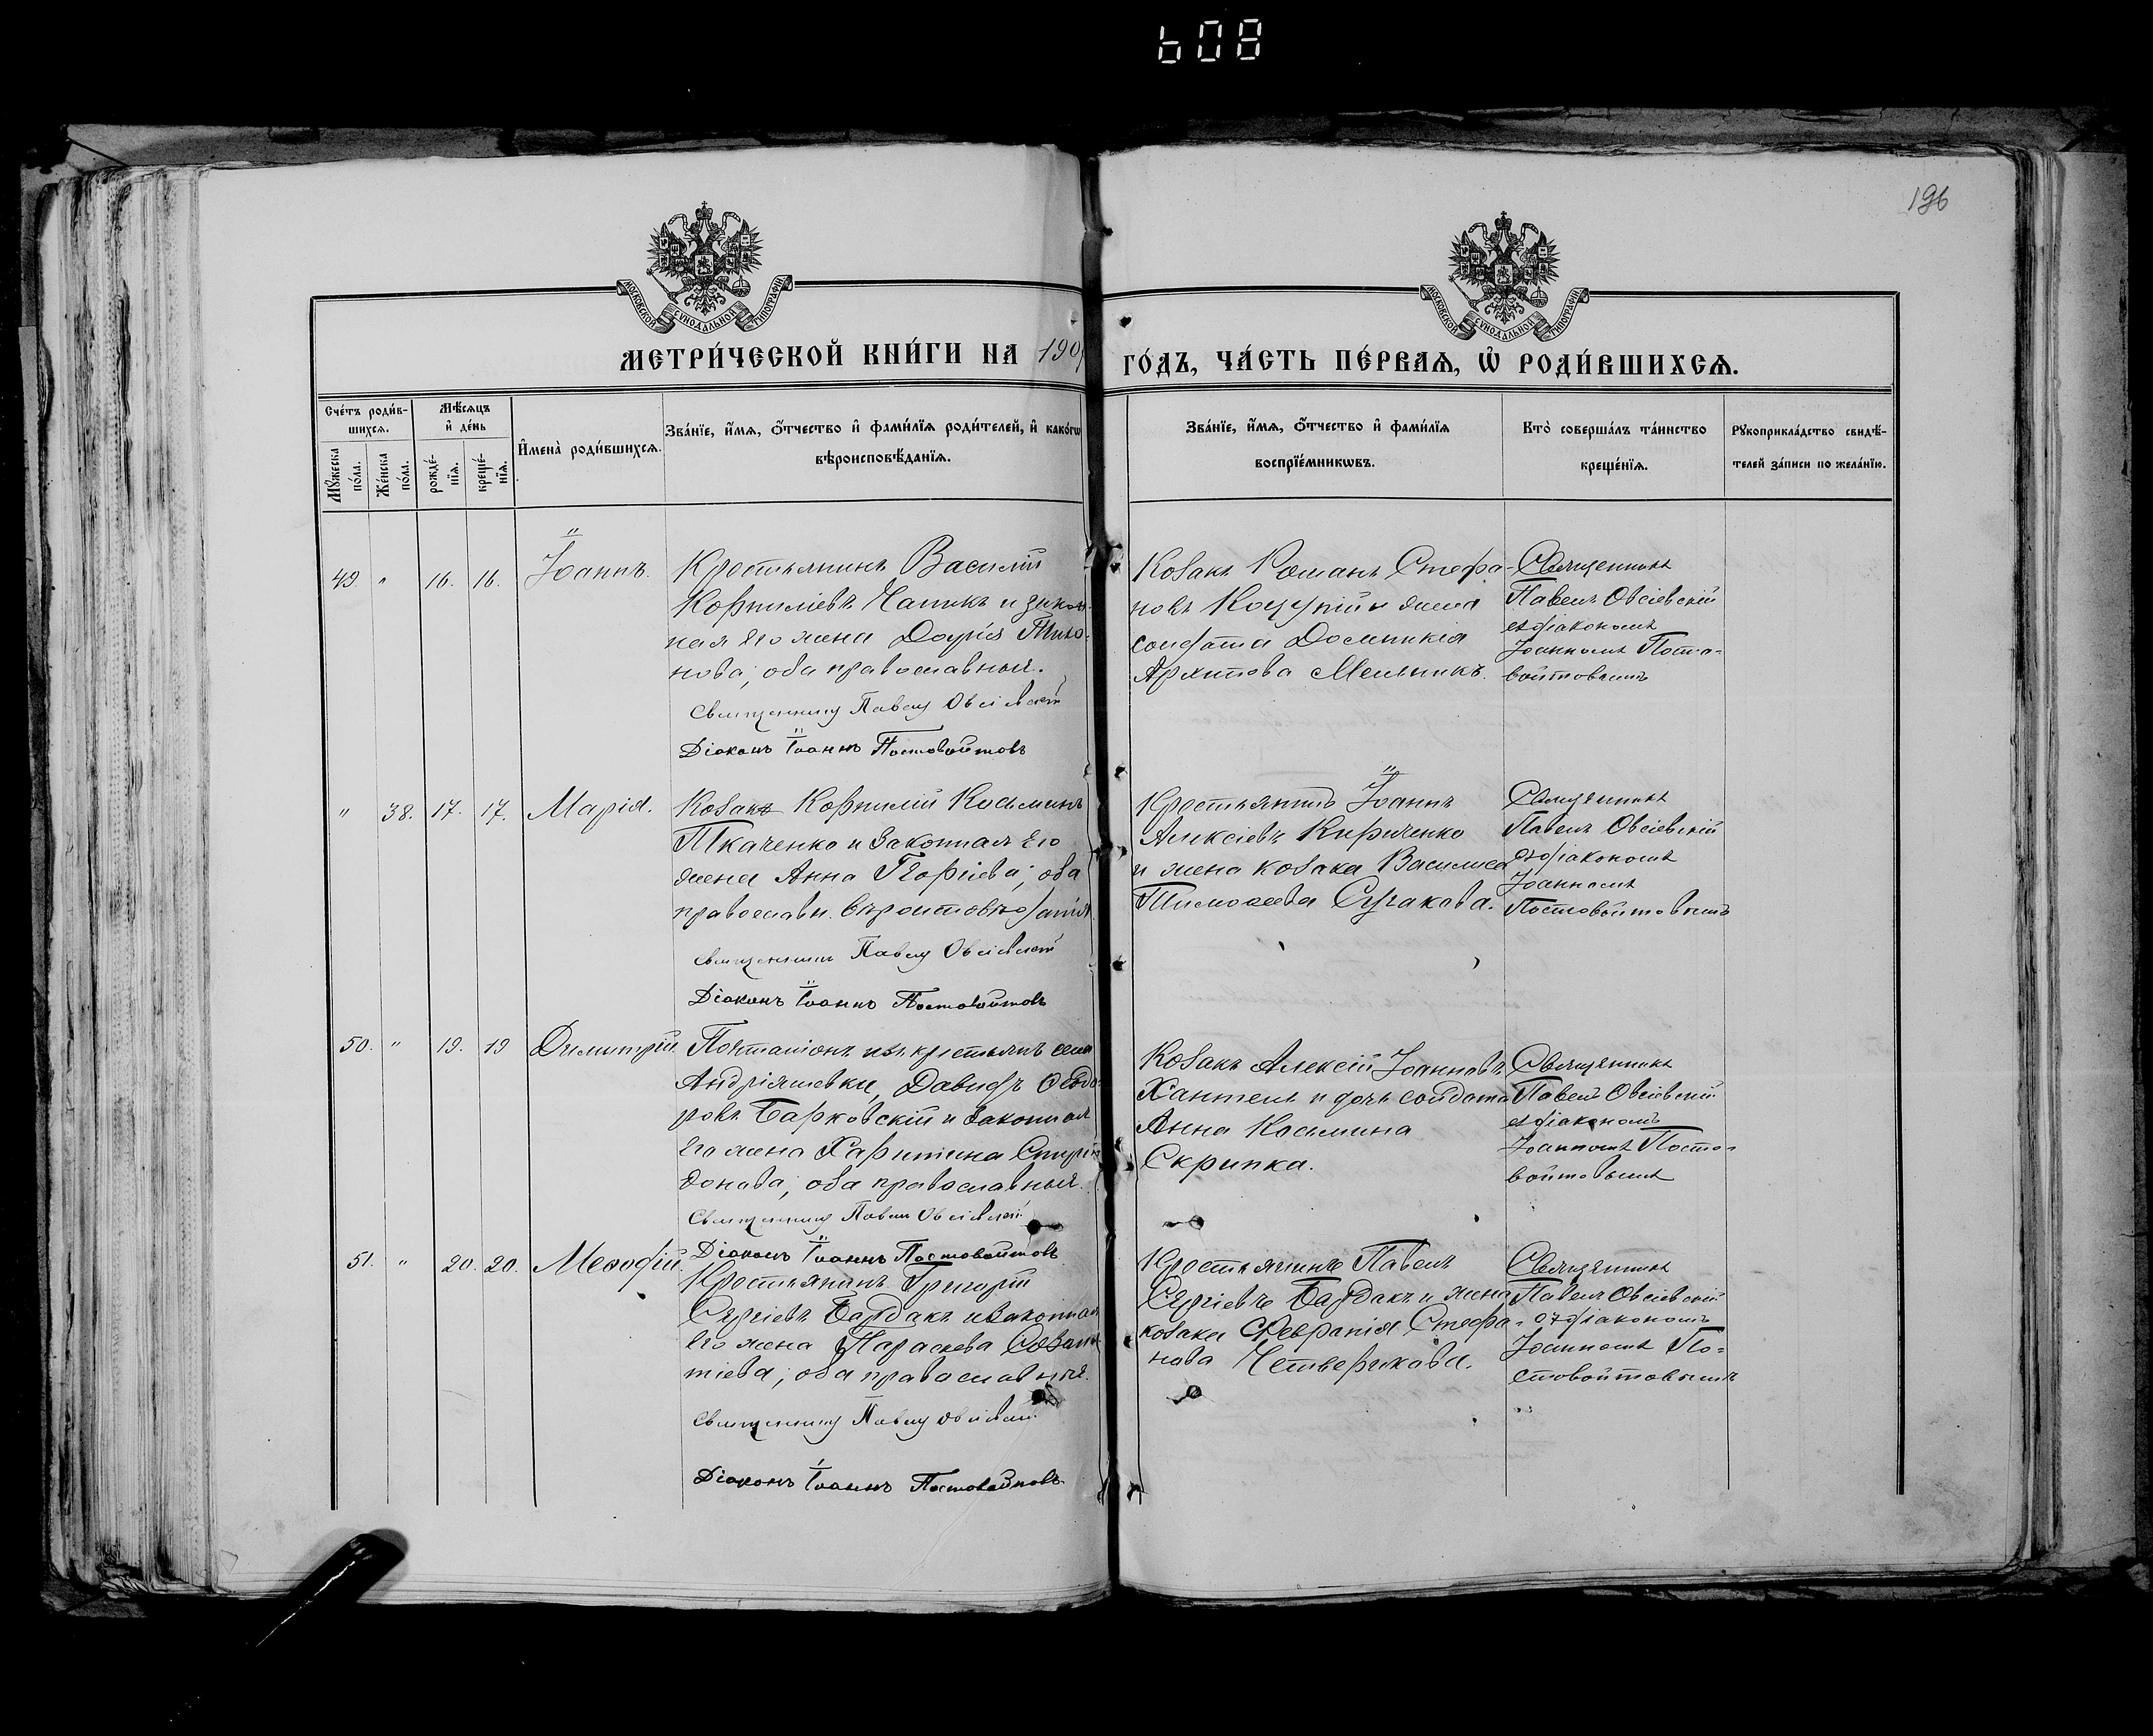 608
196
МОСКОВСКОЙ СѴНОДАЛЬНОЙ ТИПОГРАФІИ
МОСКОВСКОЙ СѴНОДАЛЬНОЙ ТИПОГРАФІИ
МЕТРИ́ЧЕСКОЙ КНИ́ГИ НА 190
ГО́ДЪ, ЧА́СТЬ ПЕ́РВАѦ, Ѡ҆ РОДИ́ВШИХСѦ.
Сче́тъ роди́в-
шихсѧ.
Мꙋ́жеска по́ла.
Же́нска по́ла.
Мѣ́сѧцъ
и҆ де́нь
рожде́-нїѧ.
креще́-нїѧ.
И҆мена̀ роди́вшихсѧ.
Зва́нїе, и҆́мѧ, ѻ҆́тчество и҆ фами́лїѧ роди́телей, и҆ како́гѡ
вѣроисповѣ́данїѧ.
Зва́нїе, и҆́мѧ, ѻ҆́тчество и҆ фами́лїѧ
воспрїе́мникѡвъ.
Кто̀ соверша́лъ та́инство
креще́нїѧ.
Рꙋкоприкла́дство свидѣ́-
телей за́писи по жела́нїю.
49. " 16. 16. Іоаннъ.
Крестьянинъ Василій
Корниліевъ Чапикъ и закон-
ная его жена Дарія
нова; оба православныя.
Священникъ Павелъ Овсіевскій
Діаконъ Іоаннъ Постовойтовъ
Козакъ Романъ Стефа-
новъ и жена
солдата Домникія
Архипова Мельникъ.
Священникъ
Павелъ Овсіевскій
съ діакономъ
Іоанномъ Посто-
войтовымъ
" 38. 17. 17. Марія.
Козакъ Корнилій Косьминъ
Ткаченко и законная его
жена Анна Георгіева; оба
православн. вѣроисповѣданія.
Священникъ Павелъ Овсіевскій
Діаконъ Іоаннъ Постовойтовъ
Крестьянинъ Іоаннъ
Алексіевъ Кириченко
и жена козака Василиса
Тимоѳеева
Священникъ
Павелъ Овсіевскій
съ діакономъ
Іоанномъ
Постовойтовымъ
50. " 19. 19 Димитрій.
Почталіонъ изъ крестьянъ села
Андріяшевки, Давидъ Ѳеодо-
ровъ Барковскій и законная
его жена Харитина Спири-
донова; оба православныя.
Священникъ Павелъ Овсіевскій
Діаконъ Іоаннъ Постовойтовъ
Козакъ Алексій Іоанновъ
Хантель и дочь солдата
Анна Косьмина
Скрипка.
Священникъ
Павелъ Овсіевскій
съ діакономъ
Іоанномъ Посто-
войтовымъ
51. " 20. 20. Меѳодій.
Крестьянинъ Григорій
Сергіевъ Бардакъ и законная
его жена Параскева
тіева; оба православныя.
Священникъ Павелъ Овсіевскій
Діаконъ Іоаннъ Постовойтовъ
Крестьянинъ Павелъ
Сергіевъ Бардакъ и жена
козака Февранія Стефа-
нова Четверикова.
Священникъ
Павелъ Овсіевскій
съ діакономъ
Іоанномъ По-
стовойтовымъ